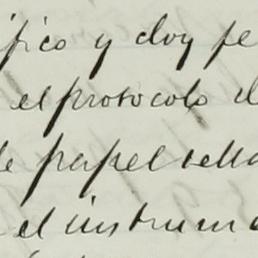 ífico y doy fe
el protocolo d
de papel sella
el instrum